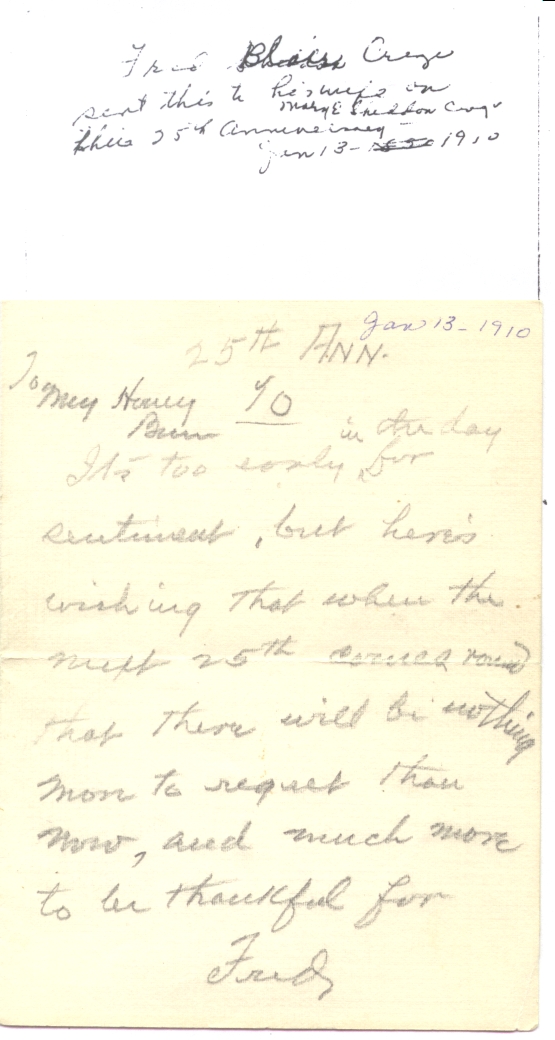 Fred Blair Creze
sent this to his wife on
Mary E Sneddon
their 25th Anniversary
Jan 13- 1910
Jan 13-1910
25th ANN.
To
My Honey
Bun
in the day
It's too early for
sentiment, but here's
wishing that when the
next 25th comes round
that there will be nothing
more to regret than
now, and much more
to be thankful for
Fred